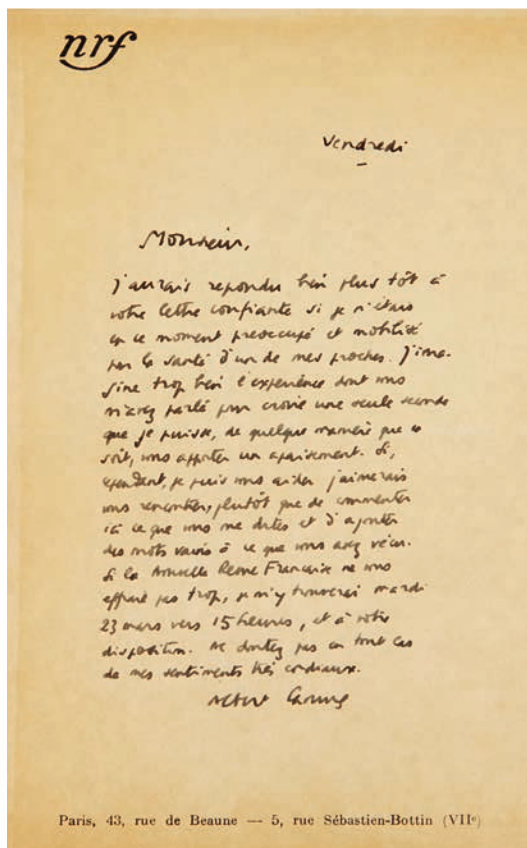 nrf
Vendredi
Monsieur,
J'aurais repondu bien plus tôt à
votre lettre confiante si je n'étais
en ce moment preoccupé et mobilisé
par la santé d'un de mes proches. J'ima-
gine trop bien l'experience dont vous
m'avez parlé pour croire une seule seconde
que je puisse, de quelque manière que ce
soit, vous apporter un apaisement. Si,
cependant, je puis vous aider j'aimerais
vous rencontrer, plutôt que de commenter
ici ce que vous me dites et d'ajouter
des mots vains à ce que vous avez vécu.
Si la Nouvelle Revue Française ne vous
effraie pas trop, je m'y trouverai mardi
23 mars vers 15 heures, et à votre
disposition. Ne doutez pas en tout cas
de mes sentiments très cordiaux.
Albert Camus
Paris, 43, rue de Beaune — 5, rue Sébastien-Bottin (VIIe)